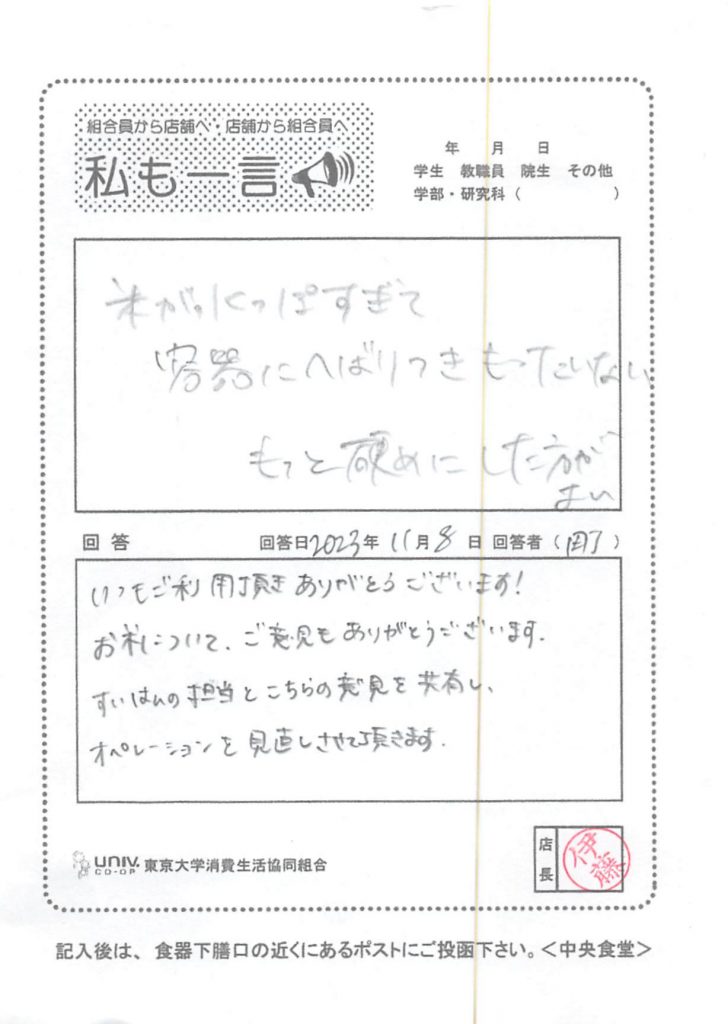 組合員から店舗へ・店舗から組合員へ
私も一言
年 月 日
学生 教職員 院生 その他
学部・研究科( )
米が水っぽすぎて
容器にへばりつきもったいない
もっと硬めにした方が
よい
回答 回答日2023年 11月 8日 回答者( )
いつもご利用頂きありがとうございます!
お米について、ご意見もありがとうございます.
すいはんの担当とこちらの意見を共有し、
オペレーションを見直しさせて頂きます.
UNIV. CO-OP 東京大学消費生活協同組合
店長 伊藤
記入後は、食器下膳口の近くにあるポストにご投函下さい。<中央食堂>